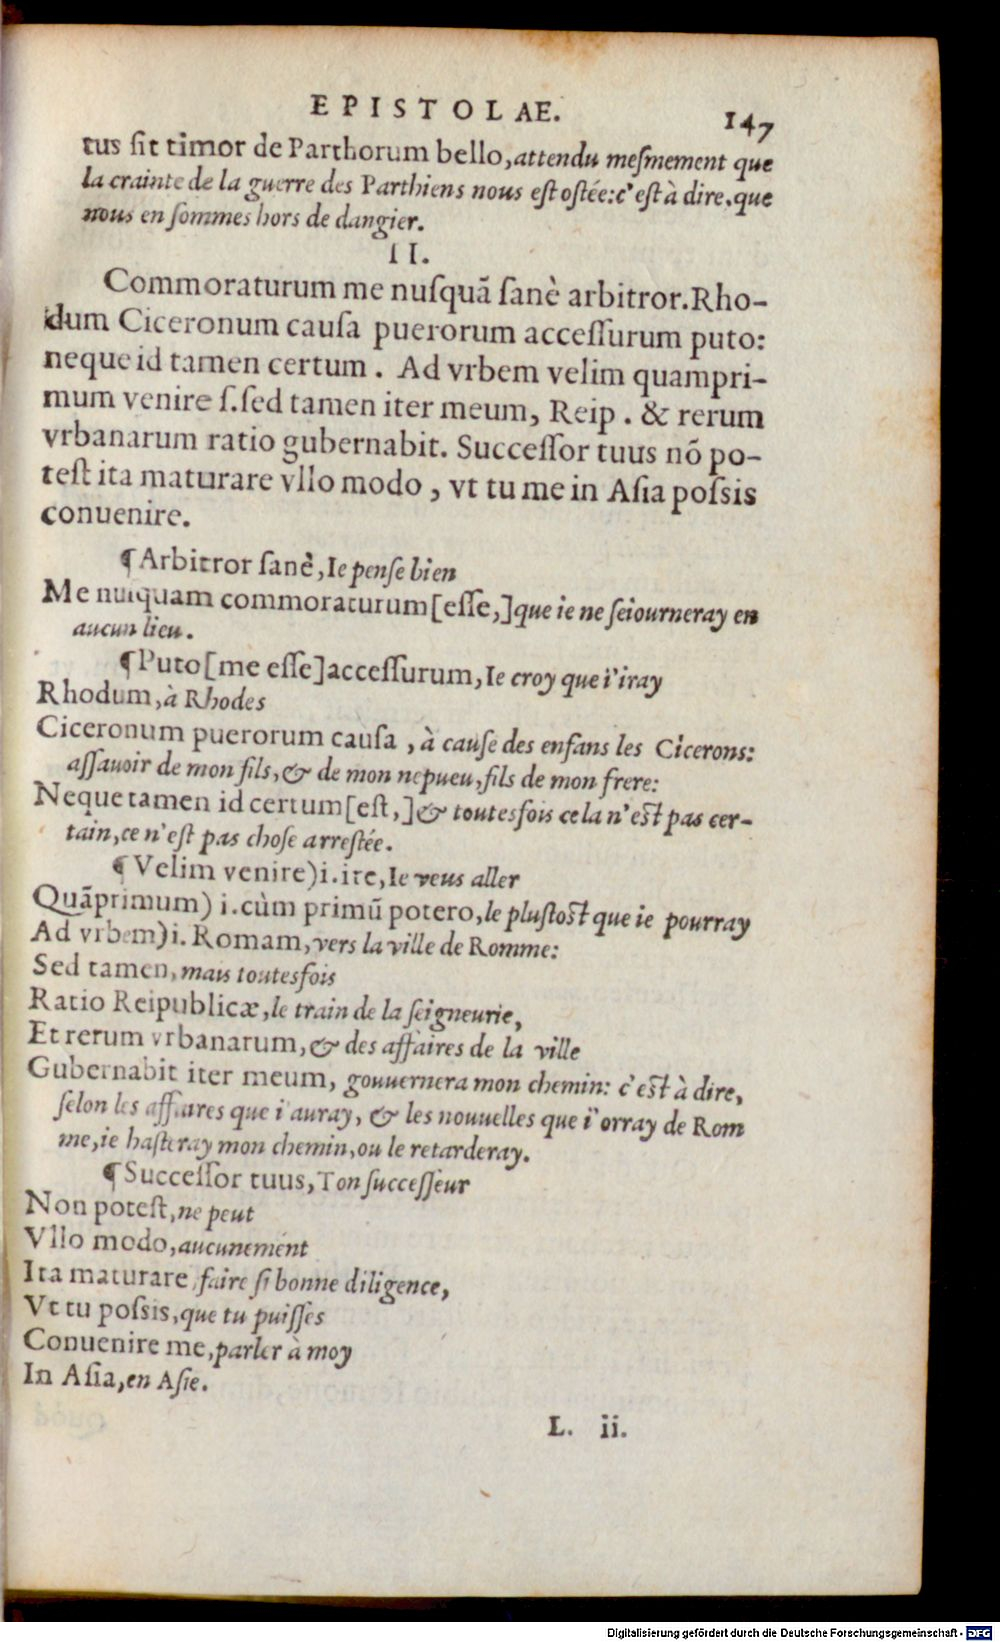 EPISTOLAE. 147
tus sit timor de Parthorum bello, attendu mesmement que
la crainte de la guerre des Parthiens nous est ostée: c'est à dire, que
nous en sommes hors de dangier.
II.
Commoraturum me nusquã sanè arbitror. Rho-
dum Ciceronum causa puerorum accessurum puto:
neque id tamen certum. Ad vrbem velim quampri-
mum venire s. sed tamen iter meum, Reip. & rerum
vrbanarum ratio gubernabit. Successor tuus nõ po-
test ita maturare vllo modo, vt tu me in Asia possis
conuenire.
¶ Arbitror sanè, Ie pense bien
Me nusquam commoraturum [esse,] que ie ne seiourneray en
aucun lieu.
¶ Puto [me esse] accessurum, Ie croy que i'iray
Rhodum, à Rhodes
Ciceronum puerorum causa, à cause des enfans les Cicerons:
assauoir de mon fils, & de mon nepueu, fils de mon frere:
Neque tamen id certum [est,] & toutesfois cela n'est pas cer-
tain, ce n'est pas chose arrestée.
¶ Velim venire) i. ire, Ie veus aller
Quãprimum) i. cùm primũ potero, le plustost que ie pourray
Ad vrbem) i. Romam, vers la ville de Romme:
Sed tamen, mais toutesfois
Ratio Reipublicæ, le train de la seigneurie,
Et rerum vrbanarum, & des affaires de la ville
Gubernabit iter meum, gouuernera mon chemin: c'est à dire,
selon les affaires que i'auray, & les nouuelles que i'orray de Rom
me, ie hasteray mon chemin, ou le retarderay.
¶ Successor tuus, Ton successeur
Non potest, ne peut
Vllo modo, aucunement
Ita maturare, faire si bonne diligence,
Vt tu possis, que tu puisses
Conuenire me, parler à moy
In Asia, en Asie.
L. ii.
Digitalisierung gefördert durch die Deutsche Forschungsgemeinschaft - DFG